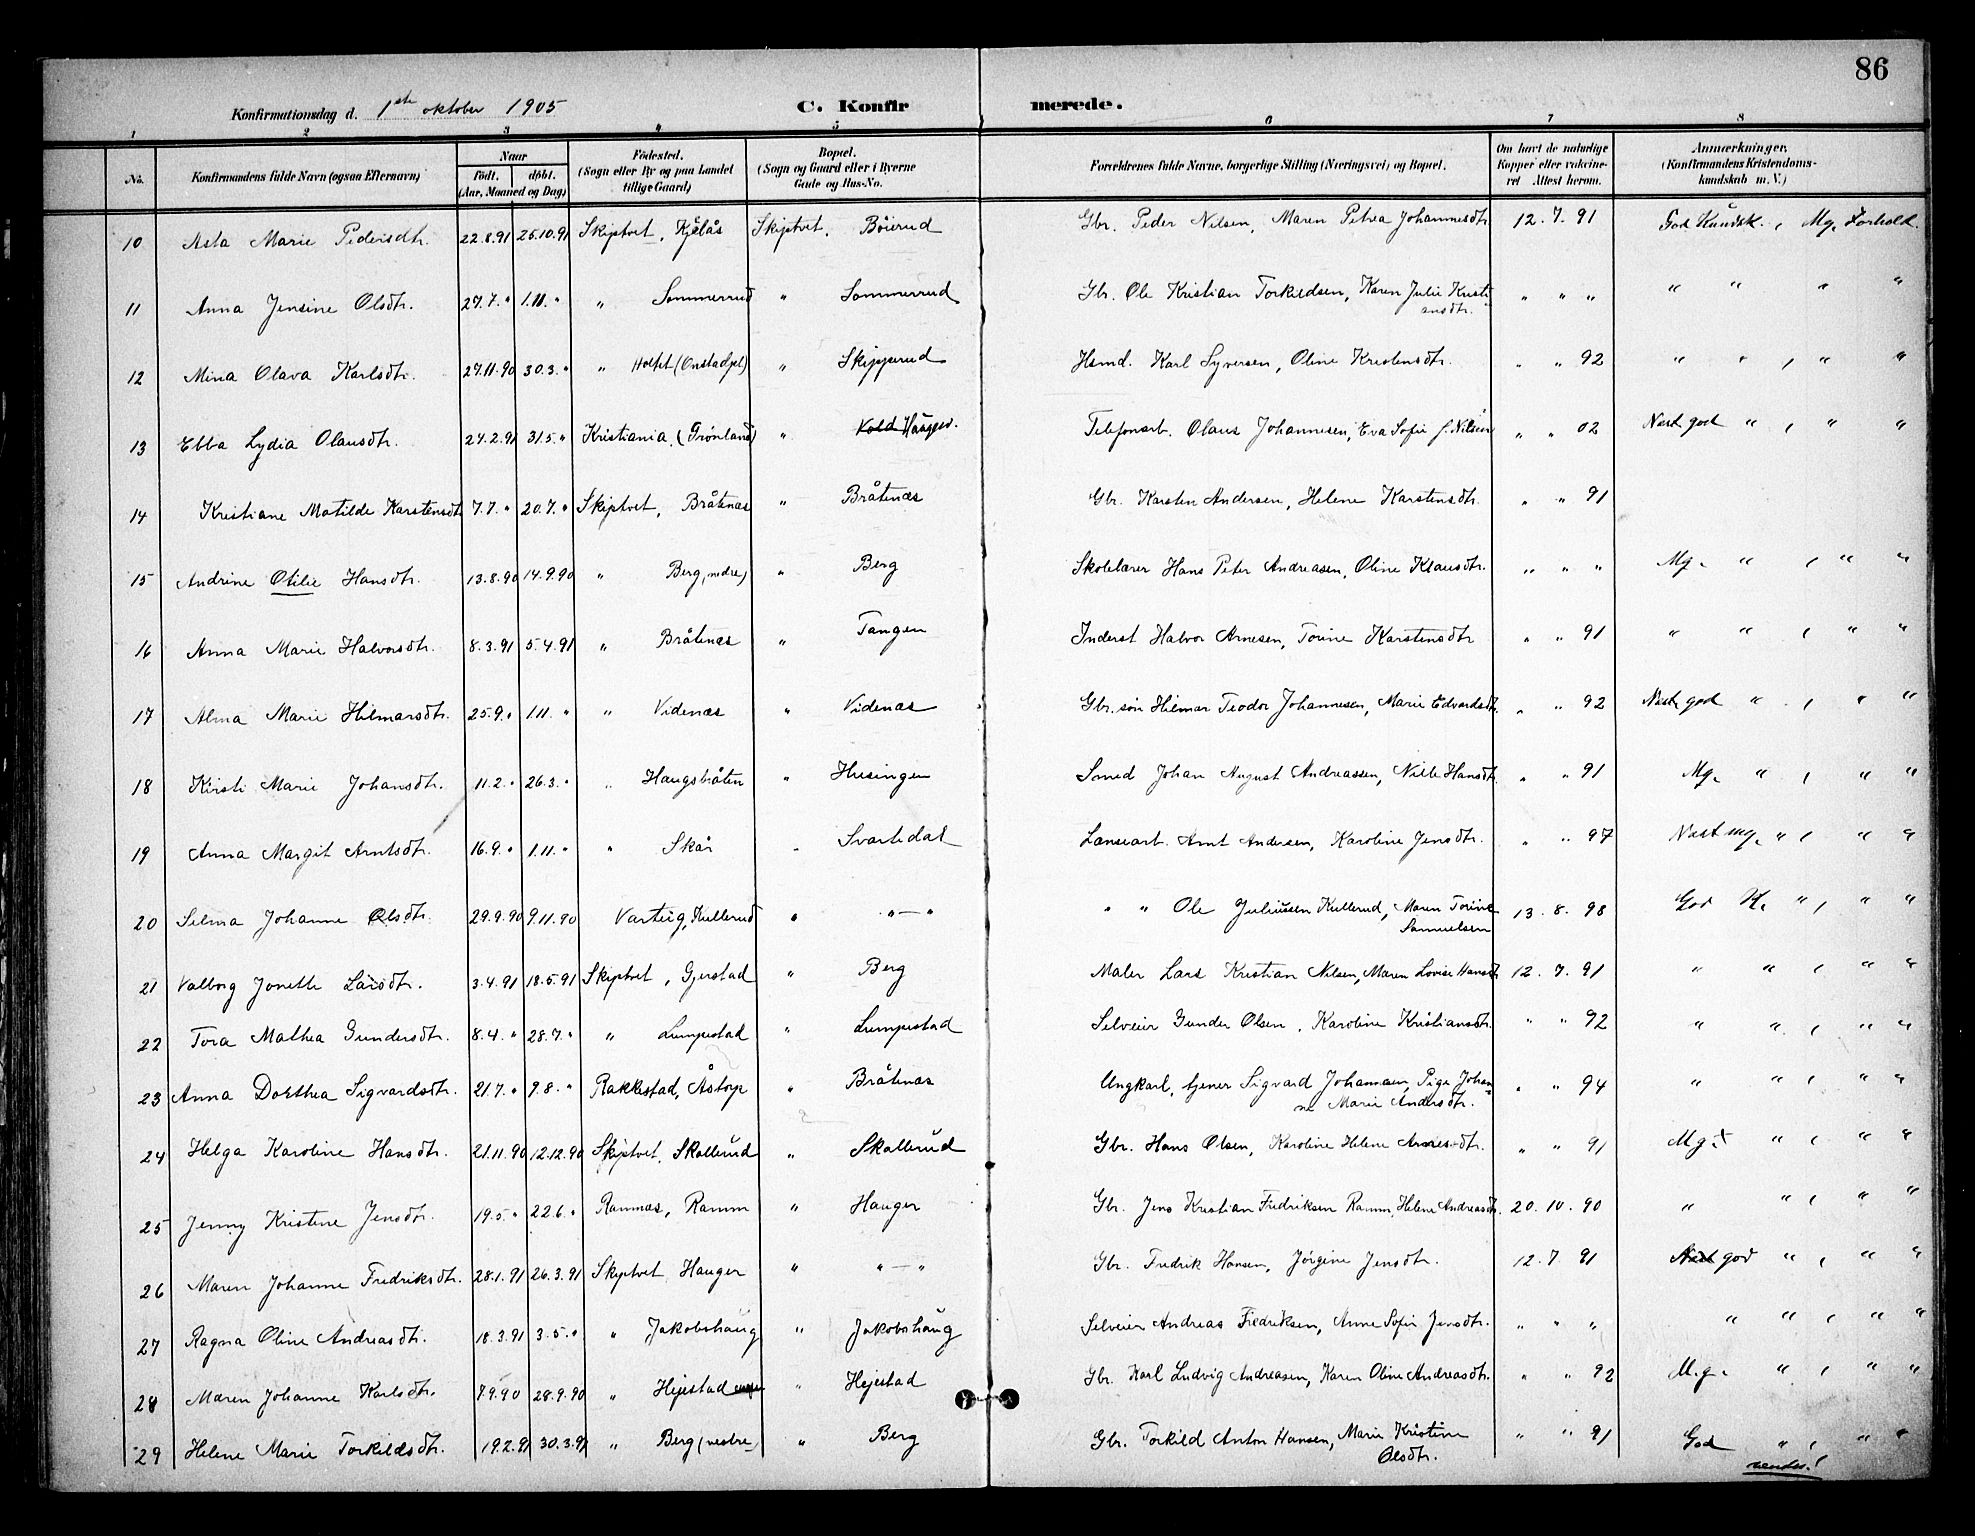 86
Konfirmationsdag d. 1ste oktober 1905 C. Konfirmerede.
1 2 3 4 5 6 7 8
No. Konfirmandens fulde Navn (ogsaa Efternavn) Naar Födested. Bopæl. Forældrenes fulde Navne, borgerlige Stilling (Næringsvei) og Bopæl. Om havt de naturlige Anmærkninger.
födt. döbt. (Sogn eller By og paa Landet (Sogn og Gaard eller i Byerne Kopper eller vakcine- (Konfirmandens Kristendoms-
(Aar, Maaned og Dag) tillige Gaard) Gade og Hus-No. ret Attest herom. kundskab m. V.)
10 Asta Marie Pedersdtr. 22.8.91 25.10.91 Skiptvet, Kjølås Skiptvet, Böierud Gbr. Peder Nilsen, Maren Petrea Johannesdtr 12.7.91 God Kundsk., Mg. Forhold.
11 Anna Jensine Olsdtr. 27.7. " 1.11. " " Sommerrud " Sommerrud Gbr. Ole Kristian Torkildsen, Karen Julie Kristi- " " " " " " "
ansdtr.
12 Mina Olava Karlsdtr. 27.11.90 30.3. " " Holtet (Onstadpl) " Skipperud Hsmd. Karl Syversen, Oline Kristensdtr. " " 92 " " , " "
13 Ebba Lydia Olausdtr. 24.2.91 31.5. " Kristiania (Grønland) " Vold Telefonarb. Olaus Johannesen, Eva Sofie f. Nilsen " " 02 Næst god " , " "
14 Kristiane Matilde Karstensdtr 7.7. " 20.7. " Skiptvet, Bråtenæs " Bråtenæs Gbr. Karsten Andersen, Helene Karstensdtr. " " 91
15 Andrine Otilie Hansdtr. 13.8.90 14.9.90 " Berg, nedre) " Berg Skolelærer Hans Peter Andreasen, Oline Klausdtr. " " " Mg. " , " "
16 Anna Marie Halvorsdtr. 8.3.91 5.4.91 " Bråtenæs " Tangen Inderst Halvor Arnesen, Torine Karstensdtr " " 91 " " , " "
17 Alma Marie Hilmarsdtr. 25.9. " 1.11. " " Videnæs " Videnæs Gbr. søn Hilmar Teodor Johannesen, Marie Edvardsdtr. " " 92 Næst god " , " "
18 Kirsti Marie Johansdtr. 11.2. " 26.3. " " Haugsbråten " Husingen Smed Johan August Andreassen, Nille Hansdtr. " " 91 Mg. " , " "
19 Anna Margit Arntsdtr. 16.9. " 1.11. " " Skår " Svartedal Lænsearb. Arnt Andersen, Karoline Jensdtr. " " 97 Næst mg. " , " "
20 Selma Johanne Olsdtr. 29.9.90 9.11.90 Varteig, Kullerud " " — " " " Ole Juliussen Kullerud, Maren Torine 13.8.98 God K. " , " "
Samuelsen
21 Valborg Jonette Larsdtr. 3.4.91 18.5.91 Skiptvet, Gjerstad " Berg Maler Lars Kristian Nilsen, Maren Lovise Hansdtr 12.7.91 " " , " "
22 Tora Mathea Gundersdtr. 8.4. " 28.7. " " Lumpestad " Lumpestad Selveier Gunder Olsen, Karoline Kristiansdtr. " " 92 " " , " "
23 Anna Dorthea Sigvardsdtr. 21.7. " 9.8. " Rakkestad, Åstorp " Bråtenæs Ungkarl, tjener Sigvard Johannsen, Pige Johan- " " 94 " " , " "
ne Marie Andersdtr.
24 Helga Karoline Hansdtr. 21.11.90 12.12.90 Skiptvet, Skallerud " Skallerud Gbr. Hans Olsen, Karoline Helene Arnesdtr. " " 91 Mg. " , " "
25 Jenny Kristine Jensdtr. 19.5. " 22.6. " Ramnæs, Ramm " Hauger Gbr. Jens Kristian Fredriksen Ramm, Helene Andreasdtr. 20.10.90 " " , " "
26 Maren Johanne Fredriksdtr. 28.1.91 26.3.91 Skiptvet, Hauger " " — " Gbr. Fredrik Hansen, Jørgine Jensdtr. 12.7.91 Næst god " , " "
27 Ragna Oline Andreasdtr. 18.3.91 3.5. " " Jakobshaug " Jakobshaug Selveier Andreas Fredriksen, Anne Sofie Jensdtr. " " " " " , " "
28 Maren Johanne Karlsdtr. 7.9.90 28.9.90 " Hejestad " Hejestad Gbr. Karl Ludvig Andreasen, Karen Oline Andreasdtr. " " 92 M.g. " , " "
29 Helene Marie Torkildsdtr. 19.2.91 30.3.91 " Berg (vestre) " Berg Gbr. Torkild Anton Hansen, Marie Kristine " " 91 God " , " "
Olsdtr. vendes!